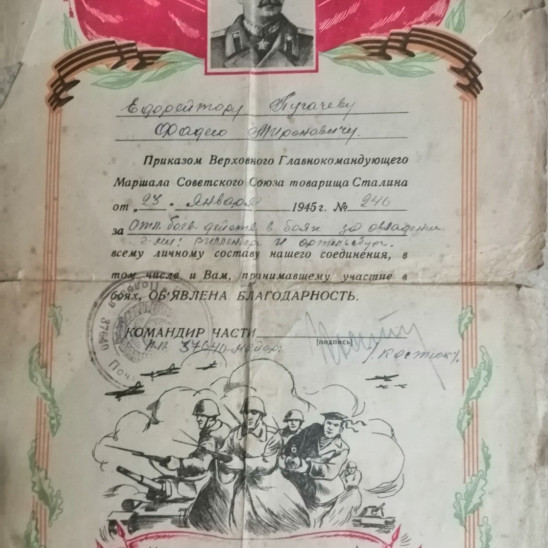 Ефрейтору Пугачеву
Фадею Мироновичу.
Приказом Верховного Главнокомандующего
Маршала Советского Союза товарища Сталина
от „23“ января 1945 г. № 246
за отл. боев. действ. в боях за овладение
г-ми:
всему личному составу нашего соединения, в
том числе и Вам, принимавшему участие в
боях, ОБ'ЯВЛЕНА БЛАГОДАРНОСТЬ.
КОМАНДИР ЧАСТИ
(подпись)
п.п. 37640
37640